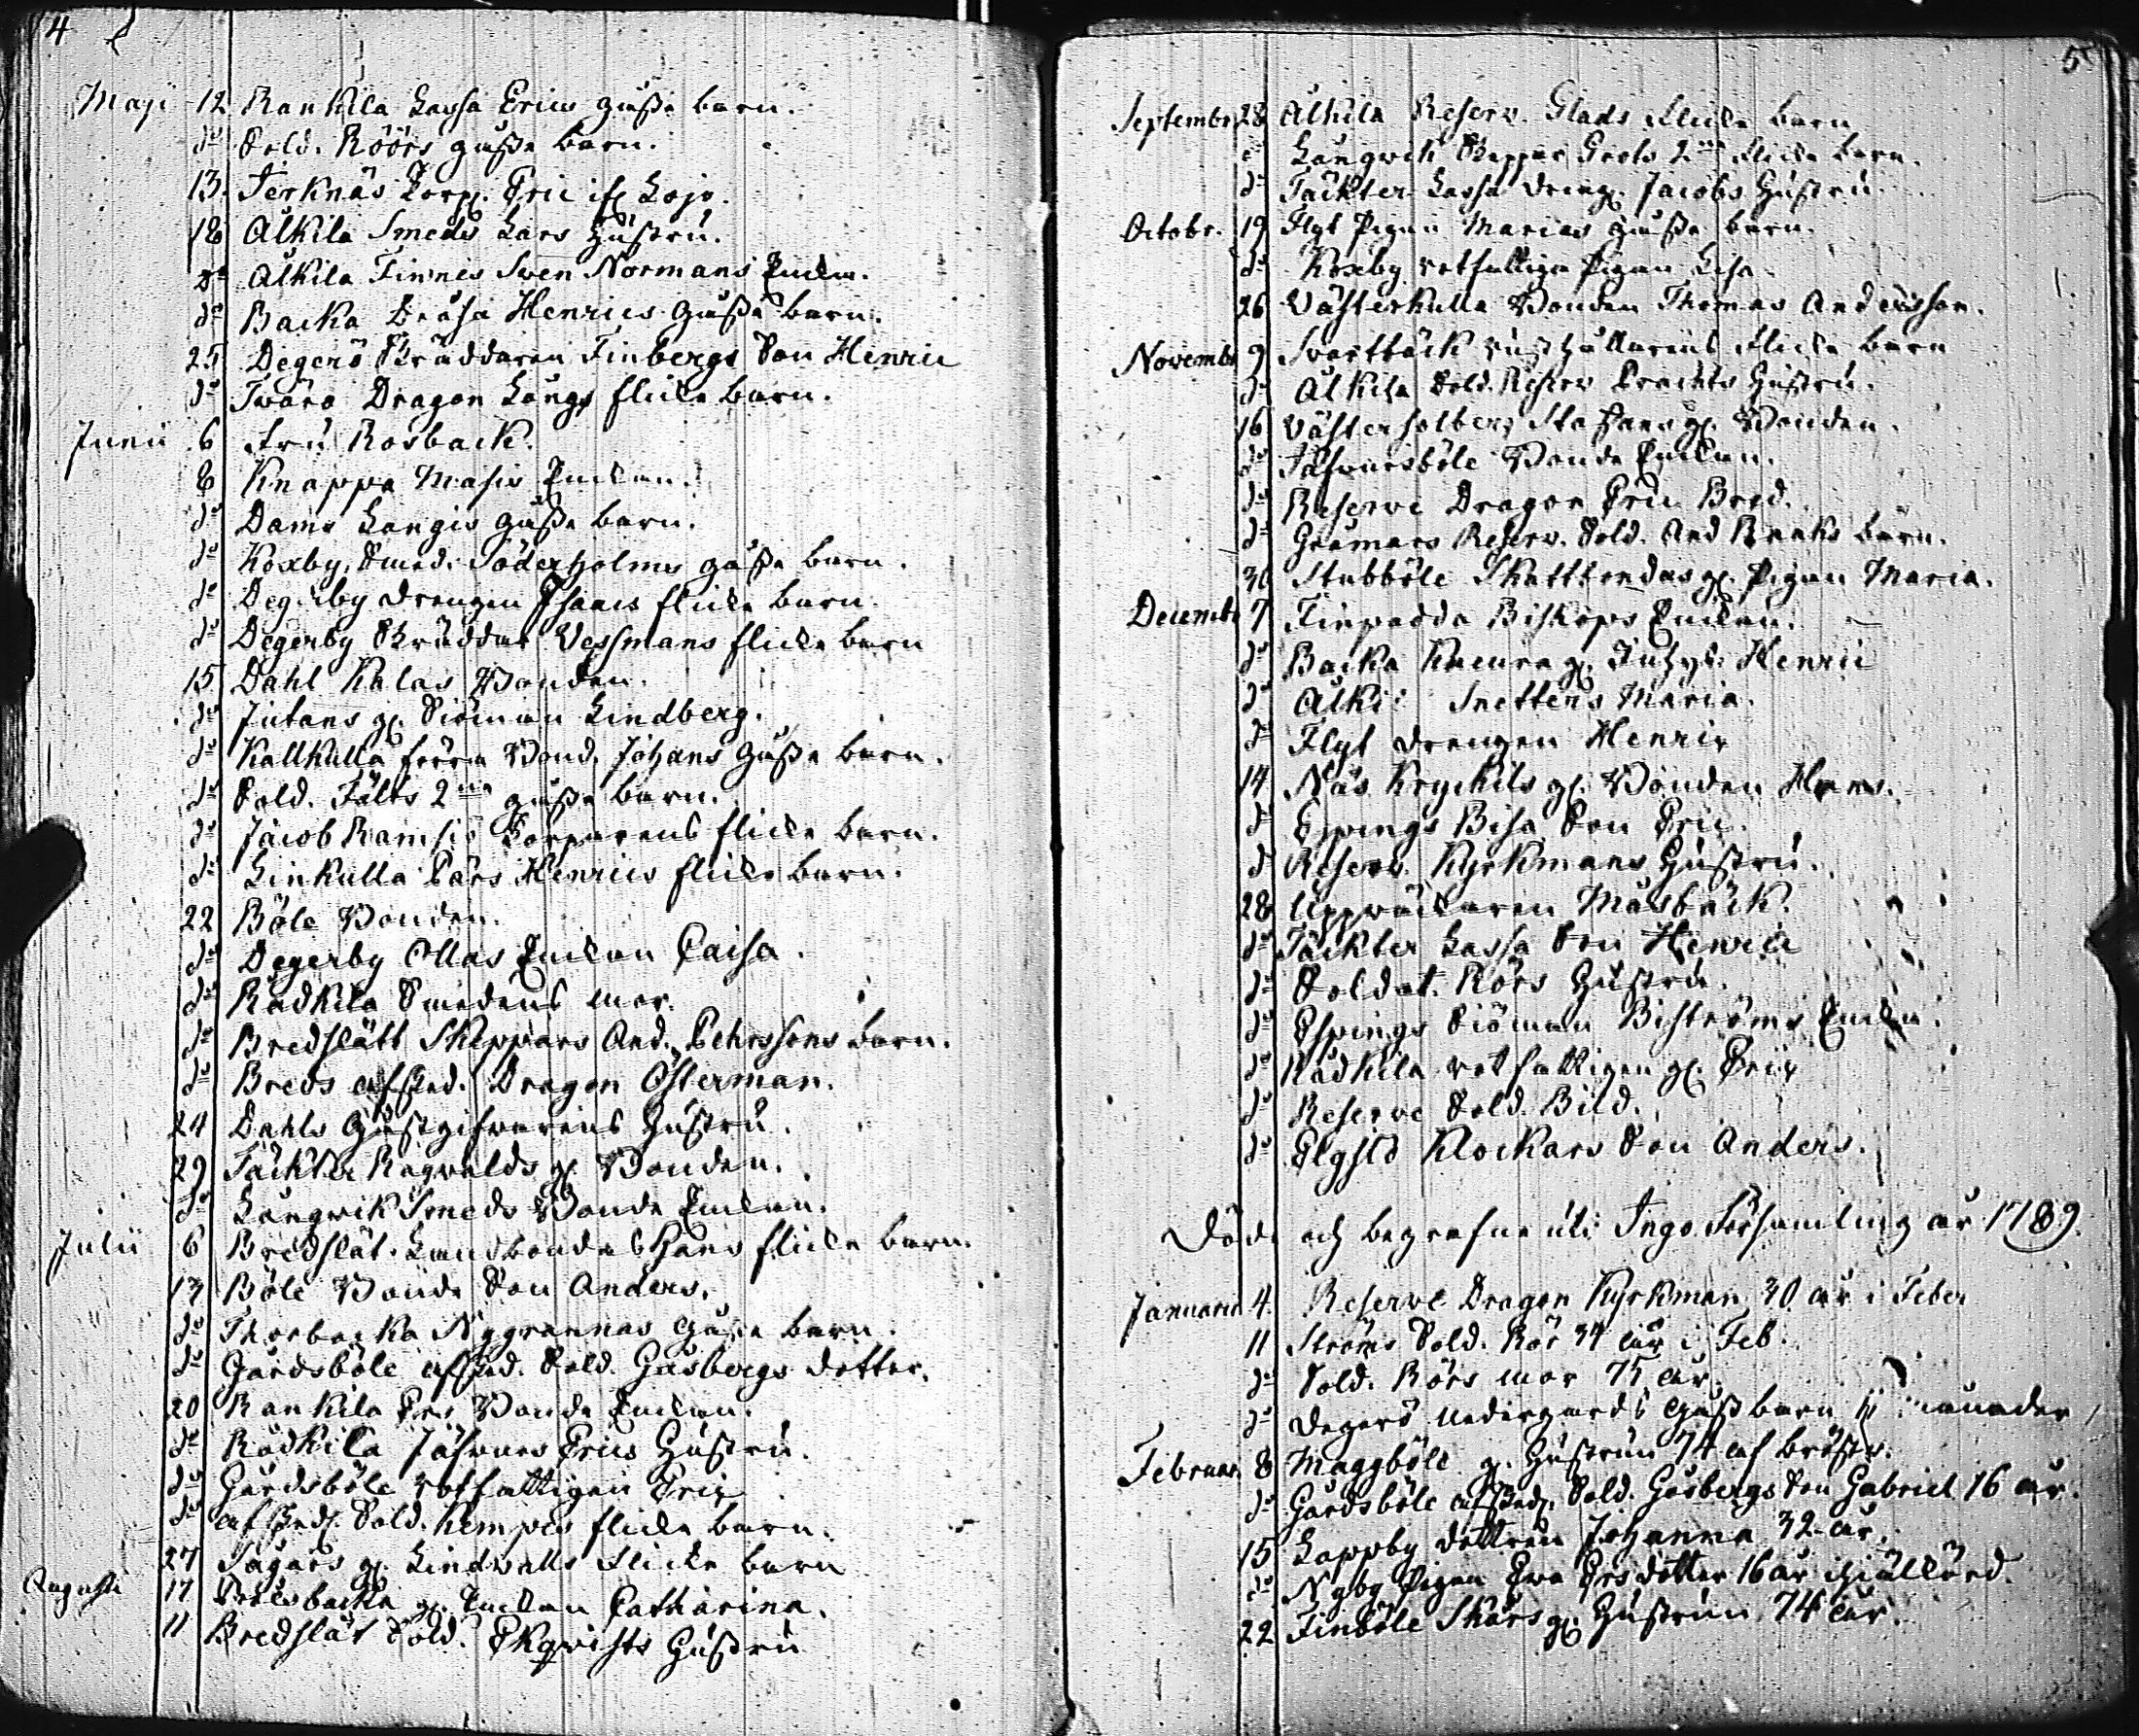 4
Maji 12 Rankila Lassa Erics gåsse barn.
do Sold. Röörs gåsse barn.
13. Terknäs Torp. Eric if Lojo.
18 Ålkila Smeds Lars Hustru.
do Ålkila Finnes Swen Normans Enkan.
do Backa Dråsa Henrics gåsse barn.
25 Degerö Skräddaren Finbergs Son Henric
do Twärö Dragon Långs flicke barn.
Junii 6 fru Rosback.
8 Knappa Masis Enkan.
do Dams Langis gåsse barn.
do Koxby Smed. Söderholms gåsse barn.
do Degerby drengen Isaacs flicke barn.
do Degerby Skräddar Vessmans flicke barn
15 Dahl Kalas Bonden.
do Jutans gl. Siöman Lindberg.
do Kallkulla förra Bond. Johans gåsse barn.
do Sold. Fälts 2ne gåsse barn.
do Jacob Ramsiö Torparens flicke barn.
do Linkulla Pärs Henrics flicke barn.
22 Böle Bonden.
do Degerby Ollas Enkan Caisa.
do Rådkila Smedens mor.
do Bredslätt Skeppars And. Pehrssons barn.
do Breds afsked. Dragon Österman.
24 Dahls Gästgifvarens Hustru.
29 Täckter Ragvalds gl. Bonden.
do Långwik Smeds Bonde Enkan.
Julii 6 Bredslät. Landbonde Hans flicke barn.
13 Böle Bonde Son Anders.
do Thorbacka Nygrannas gåsse barn.
do Gårdsböle afsked. Sold. Gåsbergs dotter.
20 Rankila Ers Bonde Enkan.
do Rådkila Jäsvars Erics Hustru.
do Gårdsböle rotfattigen Eric
do afsked. Sold. Kempes flicke barn.
27 Sågars gl. Lindvalls flicke barn
Augusti 17 backa gl. Enkan Catharina.
11 Bredslät Sold. Ekqvists Hustru
5
Septembr. 28 Ålkila Reserv. Glads flicke barn
do Långwik Skeppar Grols 2ne flicke barn.
do Täckter Lassa dreng. Jacobs Hustru.
Octobr. 19 Flyt Pigan Marias gåsse barn.
do Koxby rotfattiga Pigan Lisa
26 Västerkulla Bonden Thomas Andersson.
Novembr 9 Svartbäck rusthållarens flicke barn
do Ålkila Sold. Reserv Prachts Hustru.
16 Västersolberg Stafans gl. Bonden.
do Jäsvarsböle Bonde Enkan.
do Reserve Dragon Eric Bred.
do Gramars Reserv. Sold. And Ranks barn.
30 Stubböle Skattbondas gl. Pigan Maria.
Decembr 7 Finpadda Biskops Enkan.
do Backa Knevra gl. Inhys: Henric
do Ålki: Snettens Maria.
do Flyt drengen Henric
14 Näs Kryckils gl. Bonden Hans.
do Espings Bisa Son Eric.
do Reserv. Kyrkmans Hustru.
28 Uppväckaren Måsbäck.
do Täckter Lassa Son Henric
do Soldat. Rörs Hustru.
do Espings Siöman Biströms Enkan.
do Rådkila rotfattigen gl. Eric
do Reserve Sold. Bild.
do Elgsiö Klockars Son Anders.
Döde och begrafne uti Ingo Församling år 1789.
Januarii 4. Reserve Dragon Kyrkman 30 år i Feber
11 Ströms Sold. Rör 34 år i Feb.
do Sold. Rörs mor 75 år.
do Degerö Nedergårds gåss barn månader
Februar. 8 Maggböle gl. Hustrun 74 af bröstv.
do Gårdsböle afsked. Sold. Gåsbergs Son Gabriel 16 år.
15 Lappby dottren Johanna 32 år.
do Nyby Pigan Ewa Ersdotter 16 år ihiällörd.
22 Finböle Skärs gl. Hustrun 74 år.